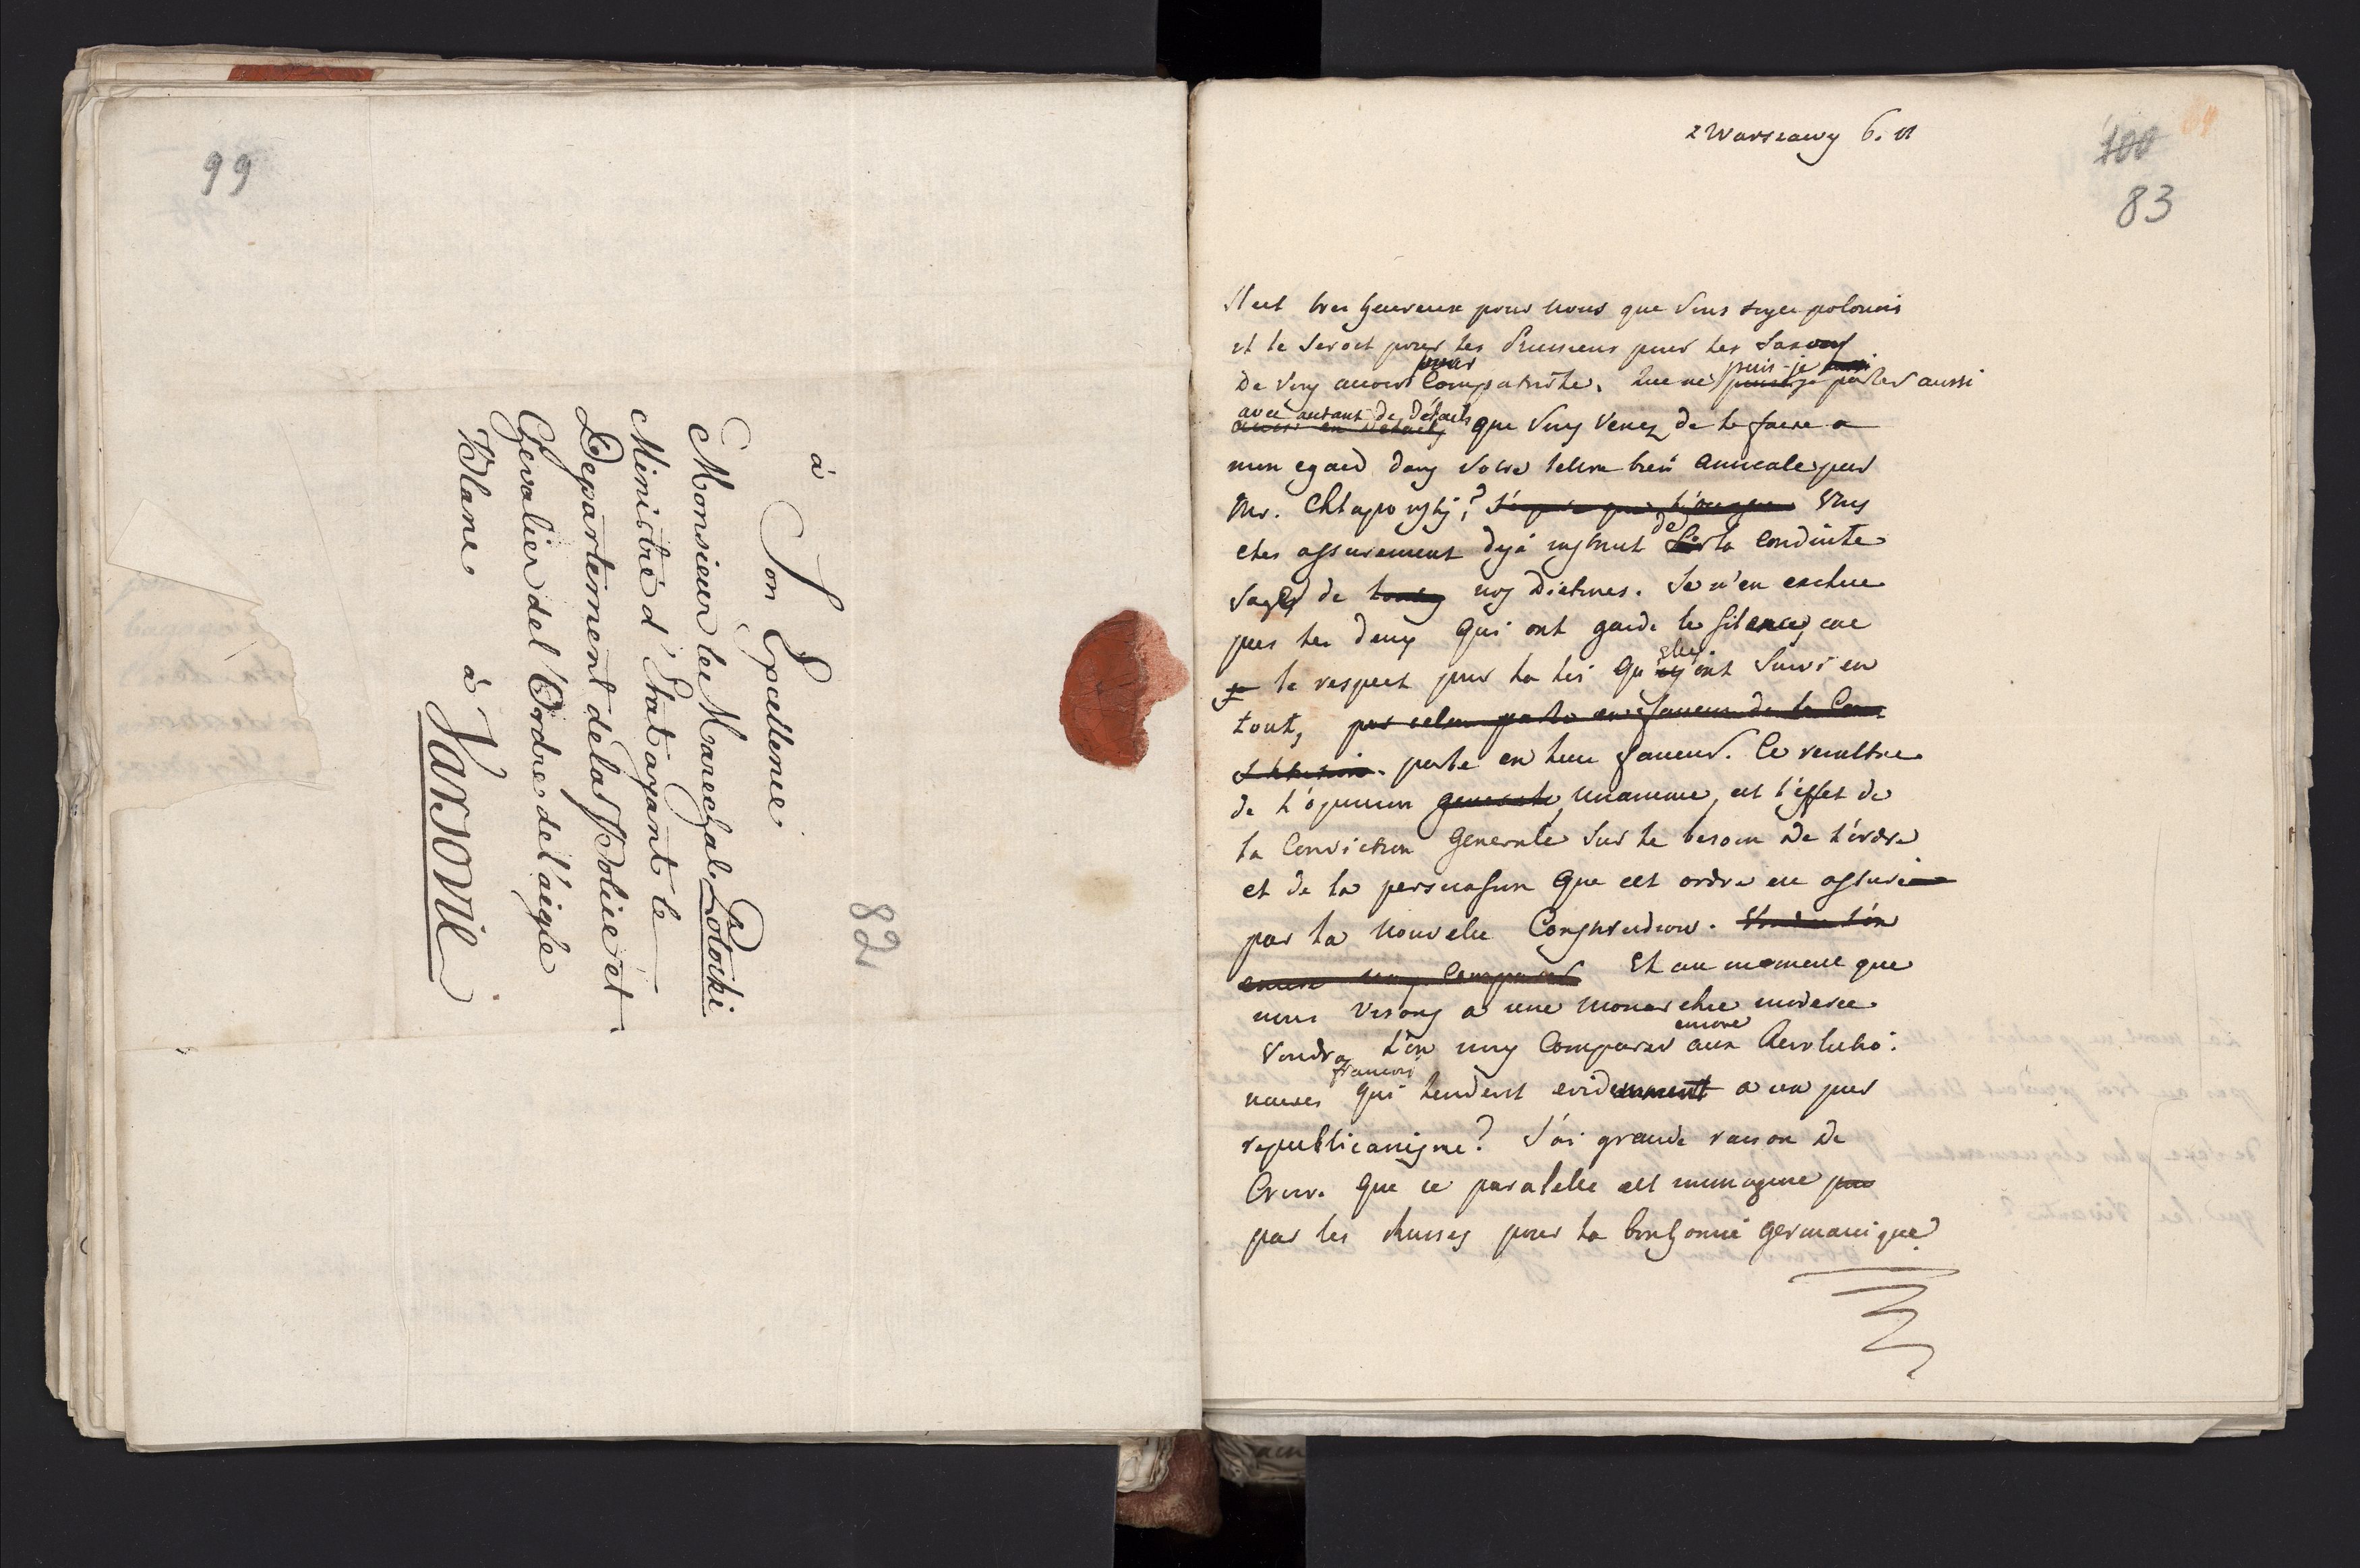 99
à
Son Excellence
Monsieur le Marechal Potocki
Ministre d'Etat ayant le
Departement de las Police et
Chevalier del'Ordre de l'aigle
Blanc à
Varsovie
82
z Warszawy 6.
100
83
Il est tres heureux pour nous que Vous soyez polonois
et le seroit pour les Prussiens pour les Saxons
pour puis-je
De Vous avoir Compatriote. Que ne parler aussi
avec autant de détails
que Vous Venez de le faire a
mon egard dans votre lettre bien amicale par
Mr. Chlapowski? Vous
de
etes assurement dejà instruit la conduite
sage de nos Dietines. Je n'en exclue
pas les deux qui ont gardé le silence, car
elles
le respect pour la loi qu' ont suivi en
tout, parle en leur faveur. Ce
de l'opinion unanime, est l'effet de
la Conviction Generale sur le besoin de l'ordre
et de la persuasion que cet ordre est assuré
par la nouvelle Constitution.
Et au moment que
nous visons a une monarchie moderée
encore
voudra L'on nous Comparer aux Revolutio-
francois
naires qui tendent evidemment a un pur
republicanisme? J'ai grande raison de
Croire que ce paralelle est
par les Russes pour la bonhomie germanique